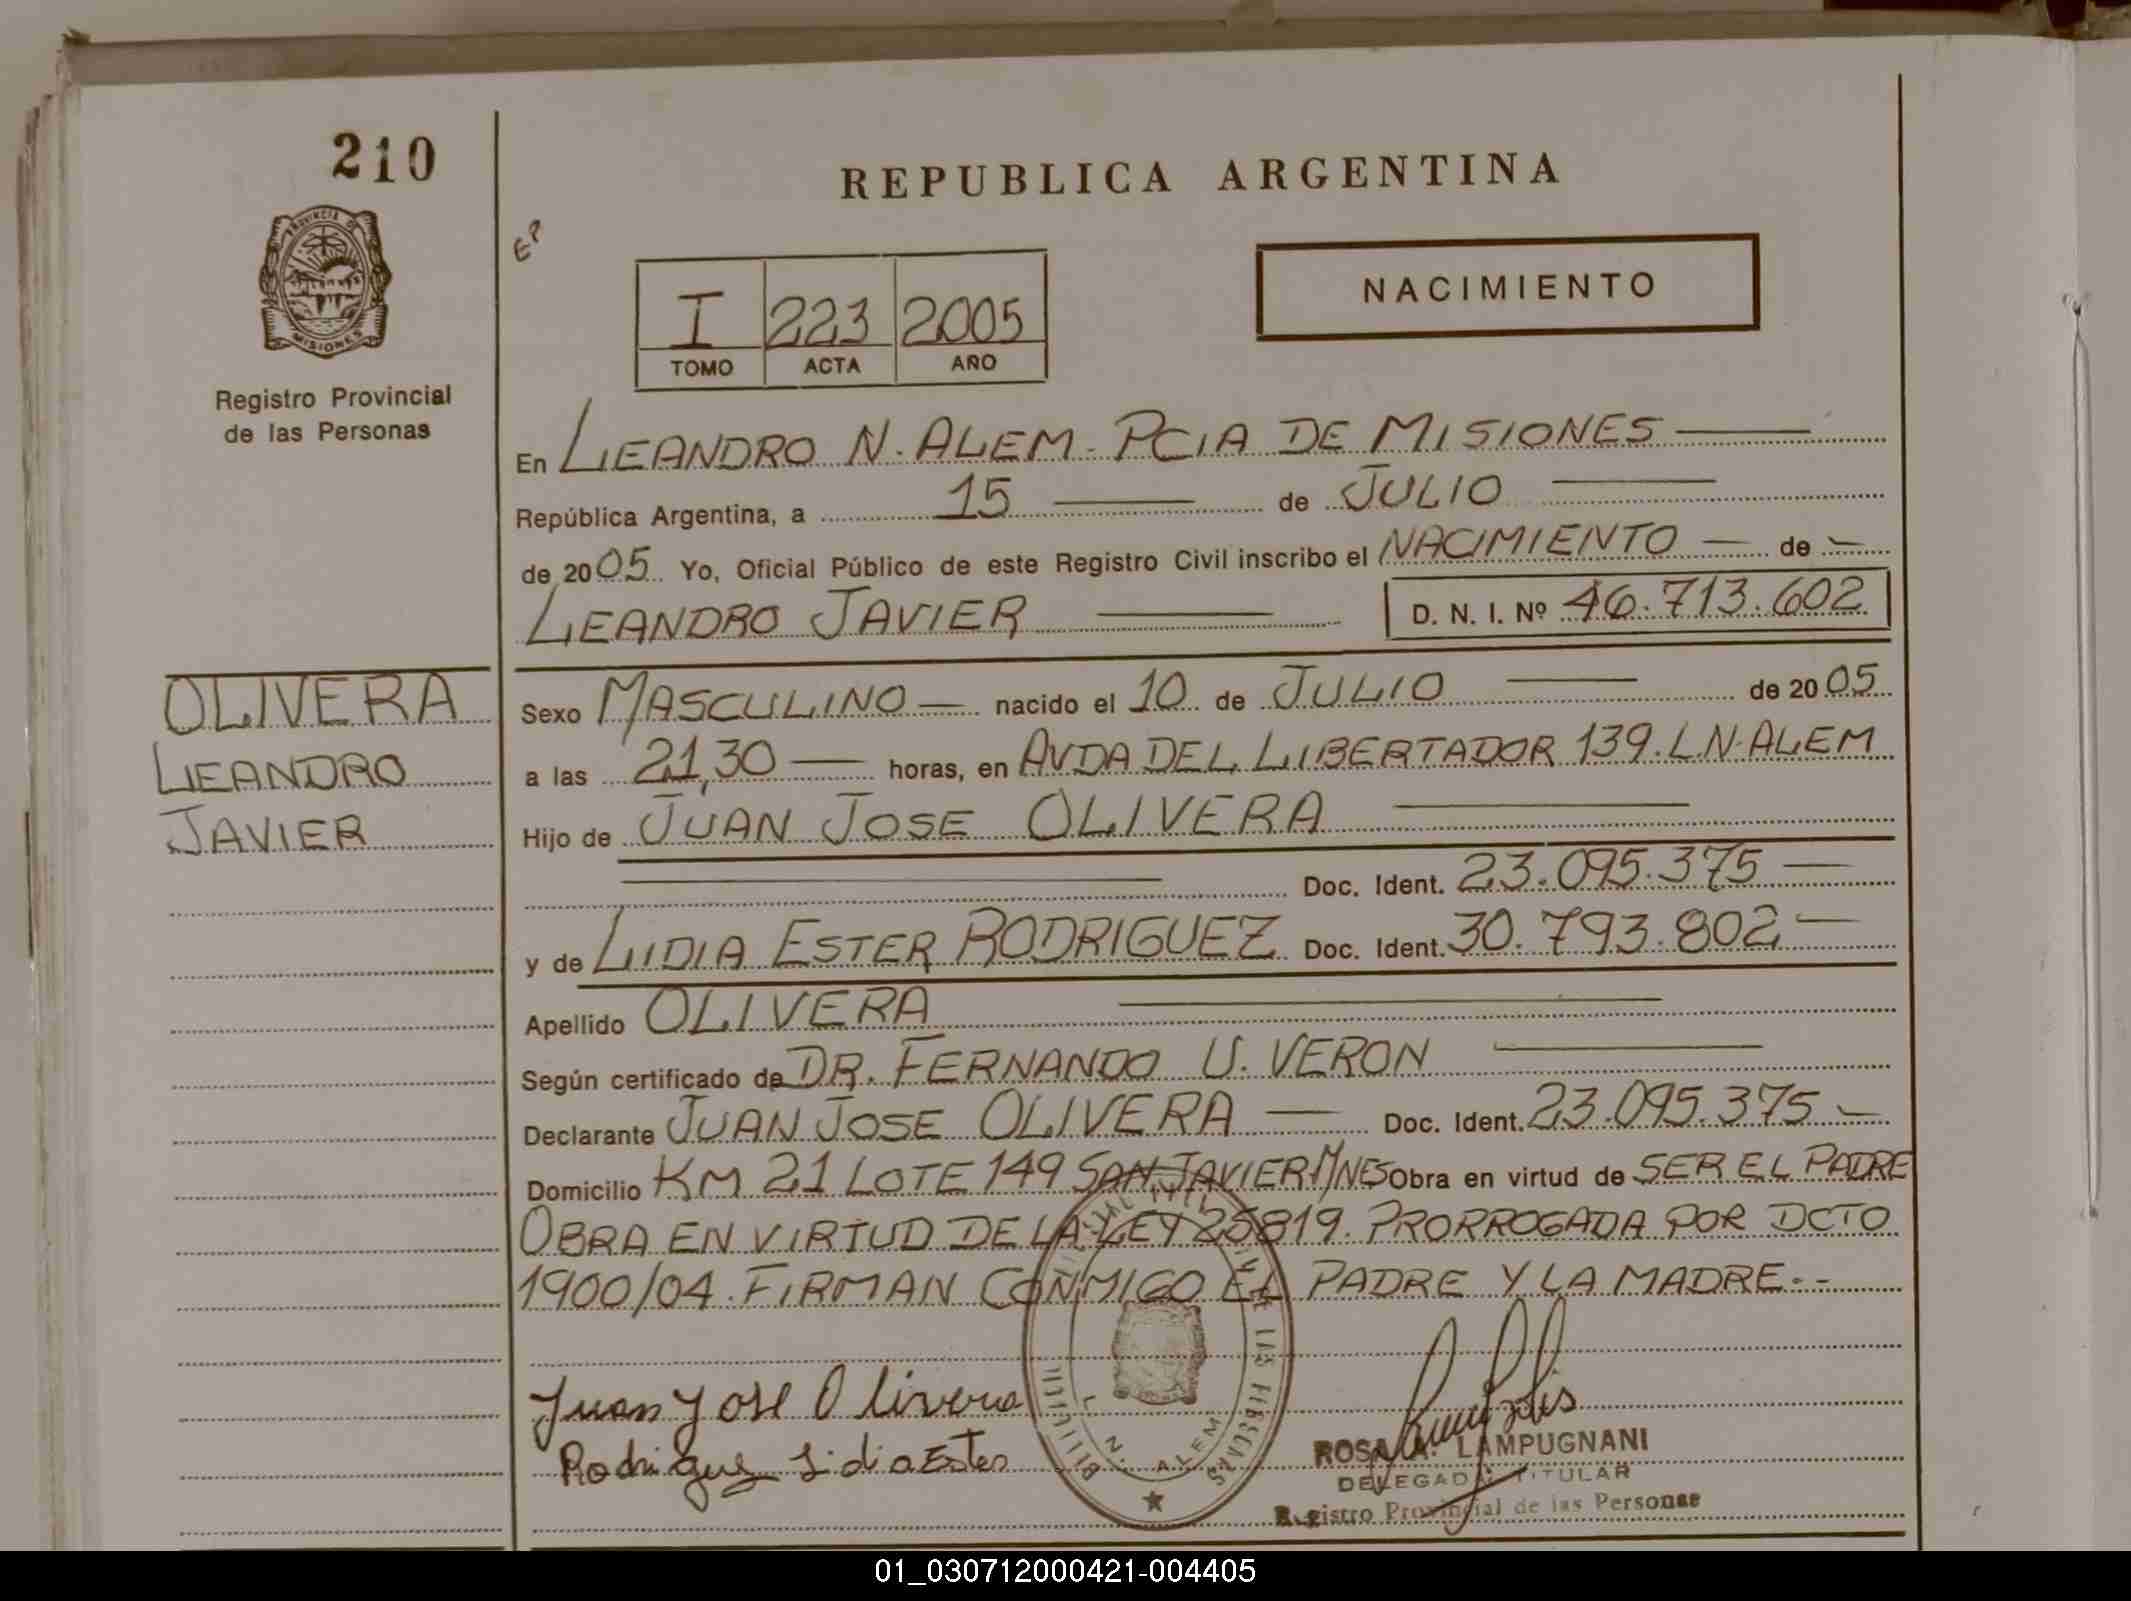 210
PROVINCIA DE
MISIONES
Registro Provincial
de las Personas
REPUBLICA ARGENTINA
I 223 2005
TOMO ACTA AÑO
NACIMIENTO
En LEANDRO N. ALEM - PCIA DE MISIONES
República Argentina, a 15 de JULIO
de 2005 Yo, Oficial Público de este Registro Civil inscribo el NACIMIENTO de
LEANDRO JAVIER D. N. I. Nº 46.713.602
OLIVERA
LEANDRO
JAVIER
Sexo MASCULINO nacido el 10 de JULIO de 2005
a las 21,30 horas, en AVDA DEL LIBERTADOR 139. L.N. ALEM
Hijo de JUAN JOSE OLIVERA
Doc. Ident. 23.095.375
y de LIDIA ESTER RODRIGUEZ Doc. Ident. 30.793.802
Apellido OLIVERA
Según certificado de DR. FERNANDO U. VERON
Declarante JUAN JOSE OLIVERA Doc. Ident. 23.095.375
Domicilio KM 21 LOTE 149 SAN JAVIER MNES Obra en virtud de SER EL PADRE
OBRA EN VIRTUD DE LA LEY 25819. PRORROGADA POR DCTO
1900/04. FIRMAN CONMIGO EL PADRE Y LA MADRE.-
Juan Jose Olivera
Rodriguez Lidia Ester
L. N. ALEM
ROSA A. LAMPUGNANI
DELEGADA TITULAR
Registro Provincial de las Personas
01_030712000421-004405